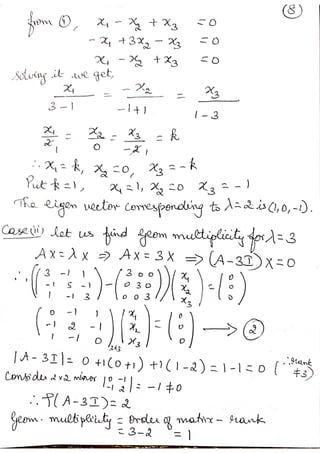 (8)
from ①, x₁ - x₂ + x₃ = 0
- x₁ + 3x₂ - x₃ = 0
x₁ - x₂ + x₃ = 0
Solving it we get,
x₁/(3-1) = -x₂/(-1+1) = x₃/(1-3)
x₁/2₁ = x₂/0 = x₃/-2₁ = k
∴ x₁ = k, x₂ = 0, x₃ = -k
Put k = 1, x₁ = 1, x₂ = 0 x₃ = -1
The eigen vector corresponding to λ=2 is (1, 0, -1).
Case(ii) let us find geom multiplicity for λ=3
AX = λX ⇒ AX = 3X ⇒ (A-3I)X = 0
∴ ((3 -1 1
-1 5 -1
1 -1 3) - (3 0 0
0 3 0
0 0 3)) (x₁
x₂
x₃) = (0
0
0)
(0 -1 1
-1 2 -1
1 -1 0)3x3 (x₁
x₂
x₃) = (0
0
0) → ②
|A - 3I| = 0 + 1(0+1) + 1(1-2) = 1-1 = 0 (∵ rank ≠ 3)
Consider 2x2 minor |0 -1
-1 2| = -1 ≠ 0
∴ ρ(A-3I) = 2
Geom. multiplicity = order of matrix - rank
= 3-2 = 1